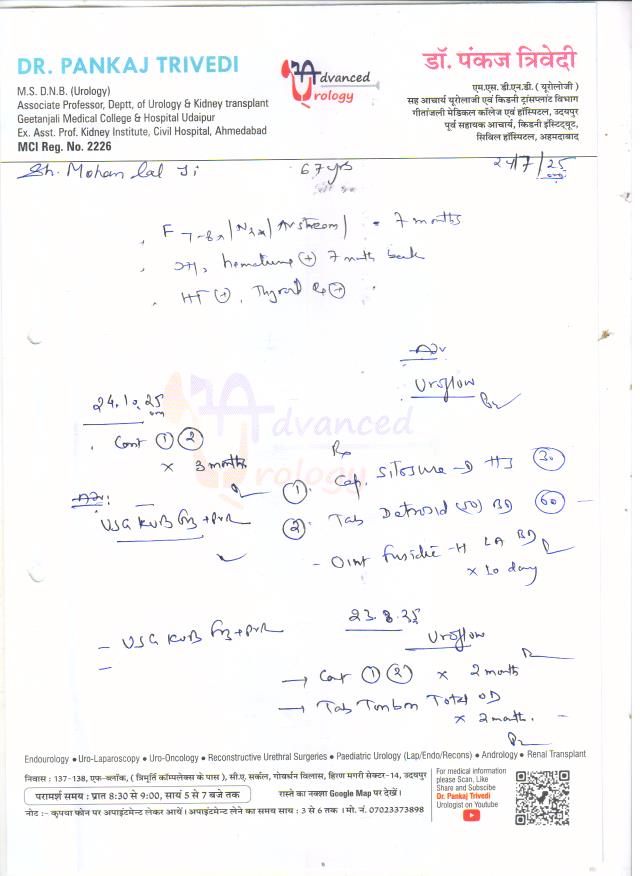 DR. PANKAJ TRIVEDI
M.S. D.N.B. (Urology)
Associate Professor, Deptt, of Urology & Kidney transplant
Geetanjali Medical College & Hospital Udaipur
Ex. Asst. Prof. Kidney Institute, Civil Hospital, Ahmedabad
MCI Reg. No. 2226
Advanced
Urology
डॉ. पंकज त्रिवेदी
एम.एस. डी.एन.बी. ( यूरोलोजी )
सह आचार्य यूरोलाजी एवं किडनी ट्रांसप्लांट विभाग
गीतांजली मेडिकल कॉलेज एवं हॉस्पिटल, उदयपुर
पूर्व सहायक आचार्य, किडनी इंस्टिट्यूट,
सिविल हॉस्पिटल, अहमदाबाद
Sh. Mohan Lal Ji 67 yrs 24/7/25
F 7-8x / N 3x / stream / 7 months
hematuria (+) 7 month back
HT (+), Thyroid
Adv
Uroflow
24.10.25
Cont ① ②
x 3 months
Adv:
USG KUB + PVR
Rx
①. Cap. Silosure HS 30
②. Tab BD 60
- Oint Fusidic-H LA BD
x 10 day
23.8.25
- USG KUB + PVR
Uroflow
→ Cont ① ② x 2 month
→ Tab Total OD
x 2 month.
Endourology • Uro-Laparoscopy • Uro-Oncology • Reconstructive Urethral Surgeries • Paediatric Urology (Lap/Endo/Recons) • Andrology • Renal Transplant
निवास : 137-138, एफ-ब्लॉक, ( त्रिमूर्ति कॉम्पलेक्स के पास ), सी.ए. सर्कल, गोवर्धन विलास, हिरण मगरी सेक्टर-14, उदयपुर
परामर्श समय : प्रात 8:30 से 9:00, सायं 5 से 7 बजे तक
रास्ते का नक्शा Google Map पर देखें।
नोट :- कृपया फोन पर अपाइंटमेन्ट लेकर आयें। अपाइंटमेन्ट लेने का समय साय : 3 से 6 तक । मो. नं. 07023373898
For medical information
please Scan, Like
Share and Subscibe
Dr. Pankaj Trivedi
Urologist on Youtube